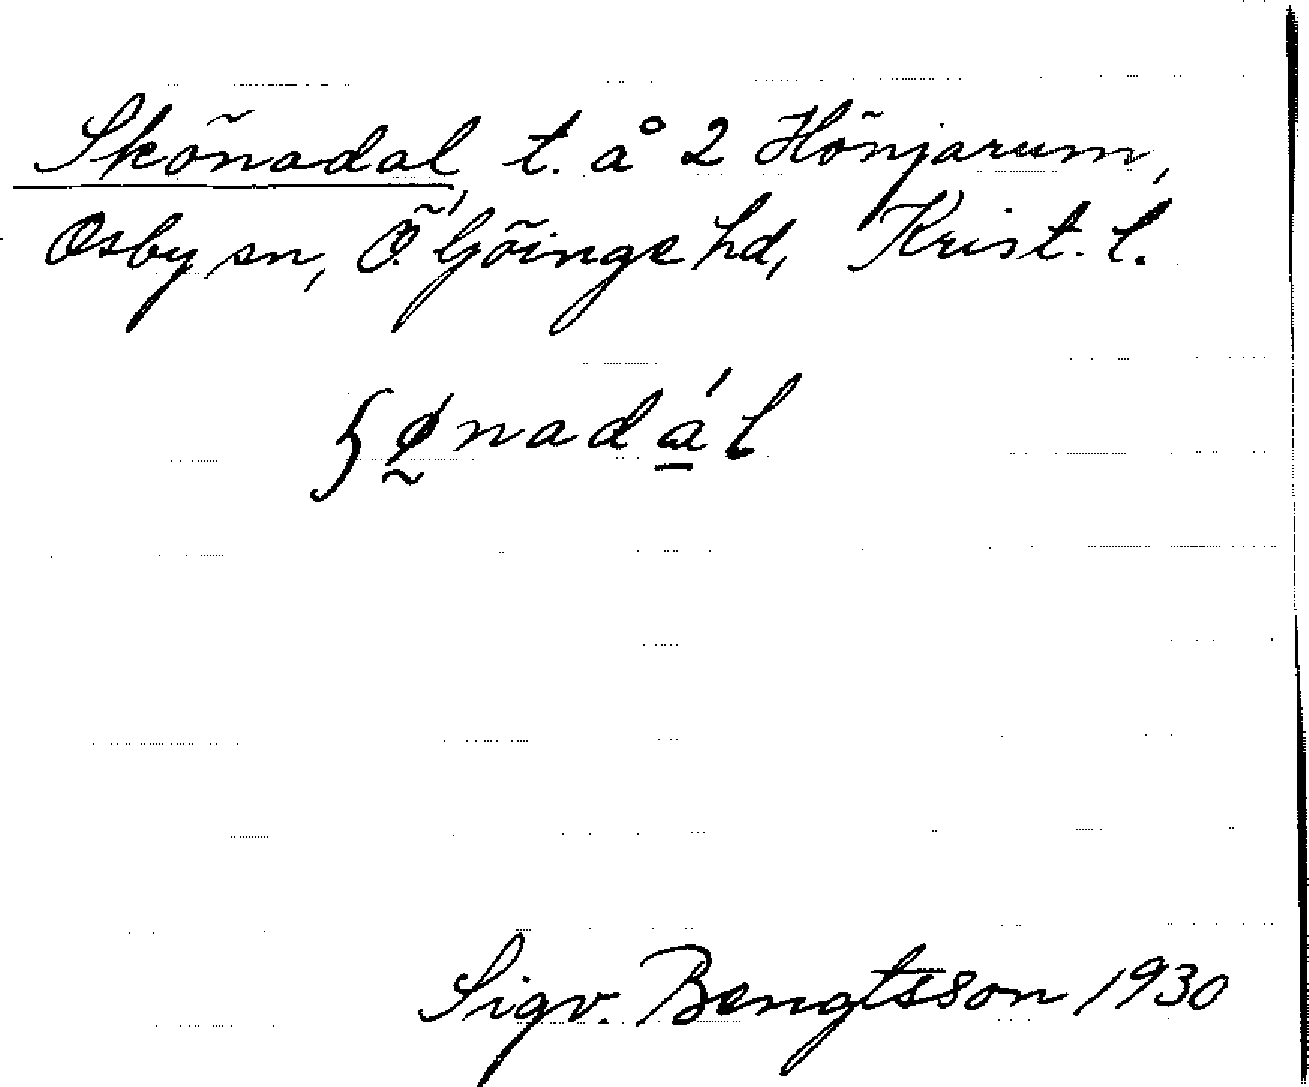 Skönadal, t. å 2 Hönjarum,
Osby sn, Ö. Göinge hd, Krist. l.
ʃø̰nadá̱l
Sigv. Bengtsson 1930